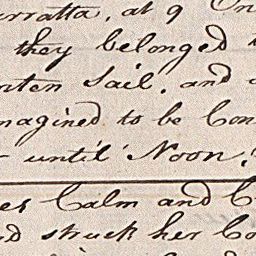 at 9 On
they belonged
Sail, and
imagined to be Con
until Noon
Calm and C
struck her Co